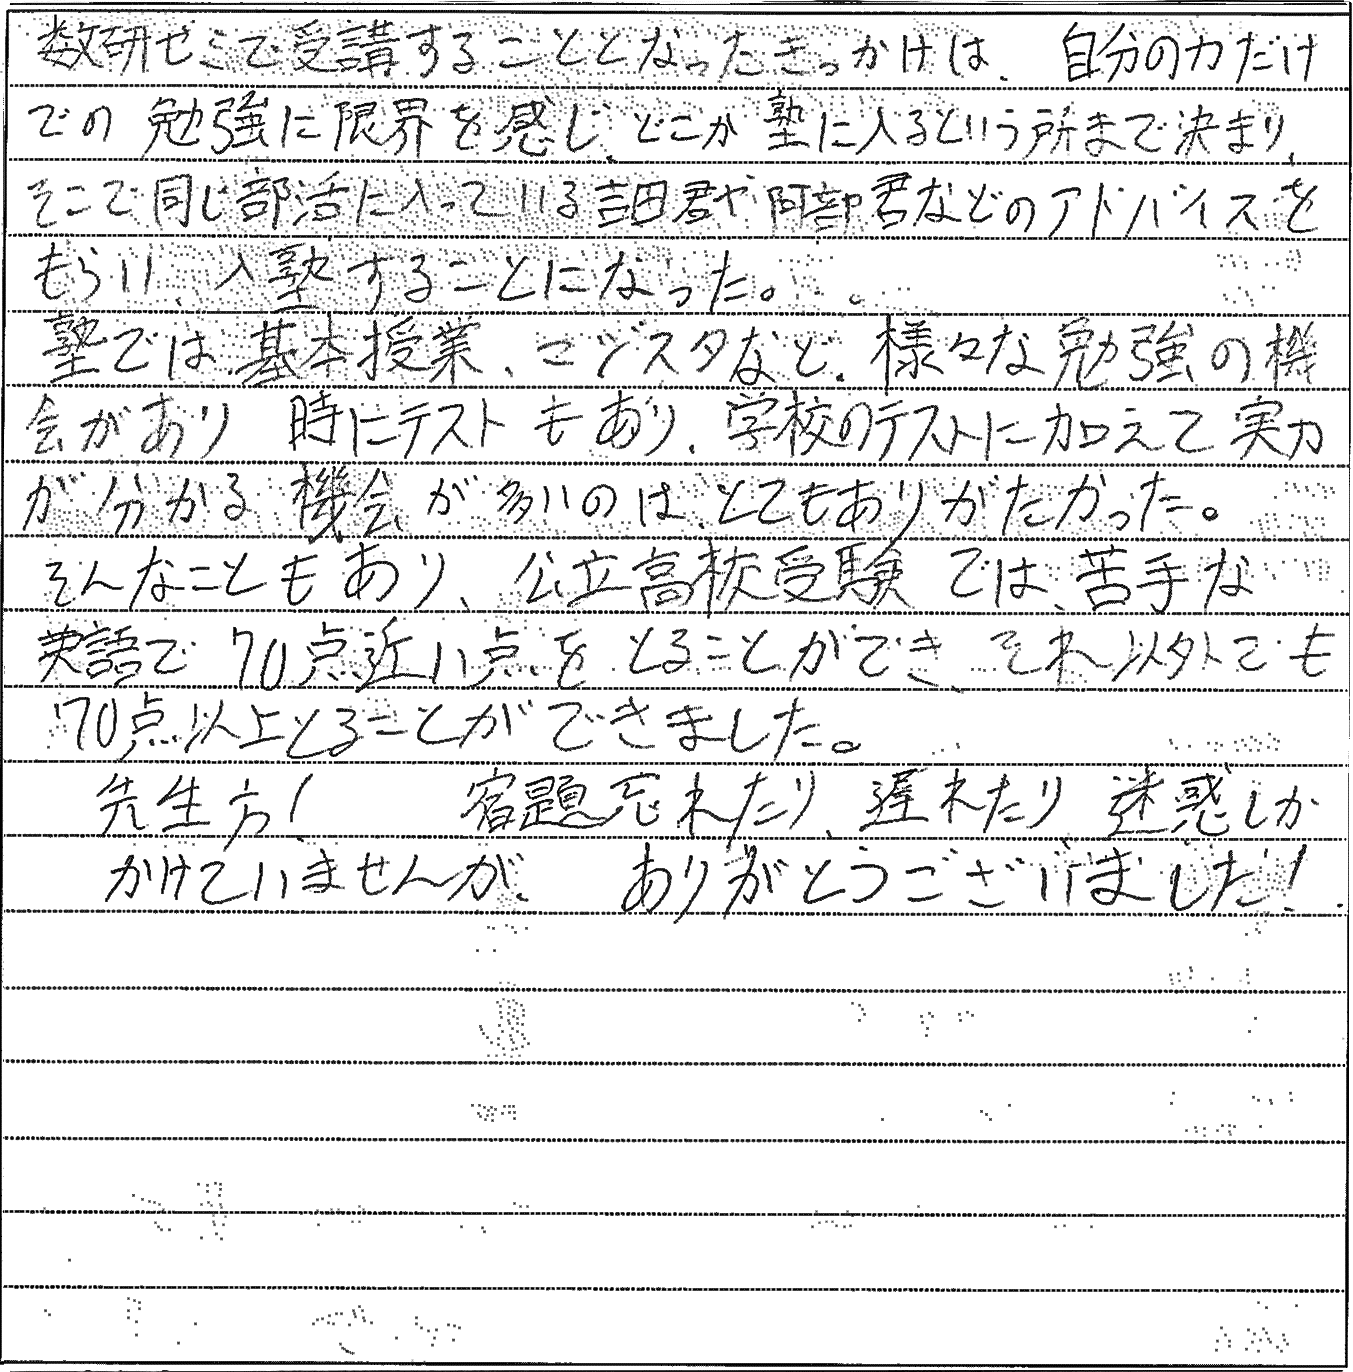 数研ゼミで受講することとなったきっかけは、自分の力だけ
での勉強に限界を感じ、どこか塾に入るという所まで決まり、
そこで同じ部活に入っている吉田君や阿部君などのアドバイスを
もらい、入塾することになった。
塾では基本授業、マジスタなど、様々な勉強の機
会があり 時にテストもあり、学校のテストに加えて実力
が分かる機会が多いのは、とてもありがたかった。
そんなこともあり、公立高校受験では、苦手な
英語で70点近い点をとることができ、それ以外でも
70点以上とることができました。
先生方! 宿題忘れたり、遅れたり 迷惑しか
かけていませんが、ありがとうございました!